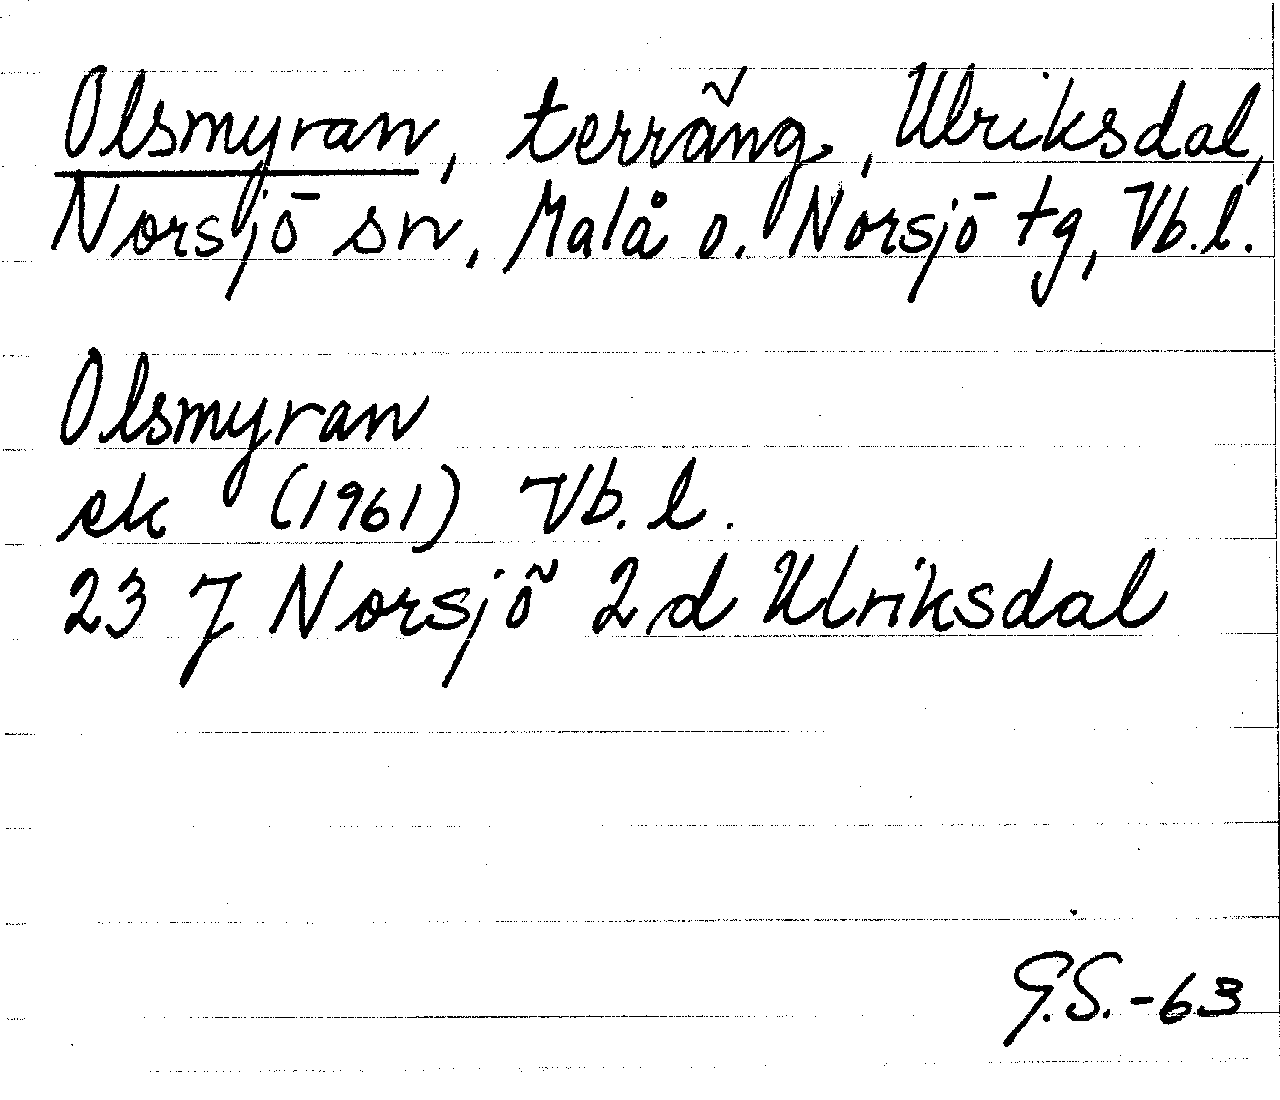 Olsmyran, terräng, Ulriksdal,
Norsjö sn, Malå o. Norsjö tg, Vb.l.
Olsmyran
ek (1961) Vb. l.
23 J Norsjö 2 d Ulriksdal
G.S.-63